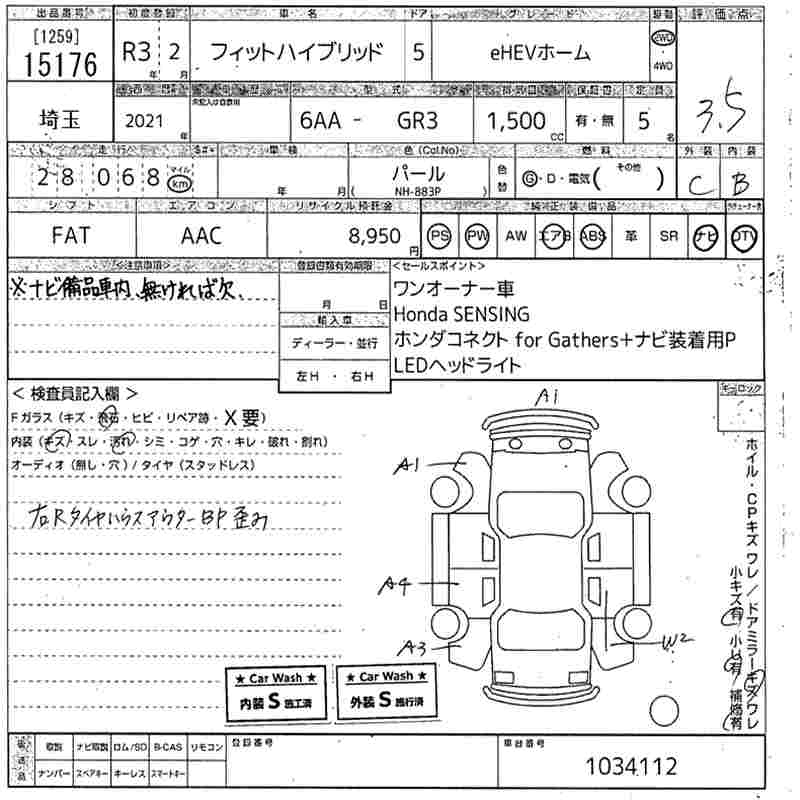 出品番号 初度登録 車名 ドア グレード 駆動 評価点
[1259]
15176 R3 2 フィットハイブリッド 5 eHEVホーム 2WD
年 月 4WD
3.5
埼玉 2021 6AA - GR3 1,500 有・無 5
年 cc 名
走行 車検 色(Col.No) 燃料 外装 内装
28,068 マイル km パール 色替 G・D・電気( その他 ) C B
年 月( NH-883P )
シフト エアコン リサイクル預託金 純正装備品
FAT AAC 8,950円 PS PW AW エアB ABS 革 SR ナビ DTV
<注意事項> 登録書類有効期限 <セールスポイント>
※ナビ備品車内、無ければ欠、
月 日
輸入車
ディーラー・並行
左H ・ 右H
ワンオーナー車
Honda SENSING
ホンダコネクト for Gathers+ナビ装着用P
LEDヘッドライト
< 検査員記入欄 > キーロック
Fガラス(キズ・飛石・ヒビ・リペア跡・X要)
内装(キズ・スレ・汚れ・シミ・コゲ・穴・キレ・破れ・割れ)
オーディオ(無し・穴)/タイヤ(スタッドレス)
右Rタイヤハウスアウター BP歪み
A1
A1
A4
A3
W2
ホイル・CPキズ ワレ/ドアミラーキズ/ワレ
小キズ有 小凹有 補修有
★ Car Wash ★
内装 S 施工済
★ Car Wash ★
外装 S 施行済
取説 ナビ取説 ロム/SD B-CAS リモコン 登録番号 車台番号
ナンバー スペアキー キーレス スマートキー
1034112